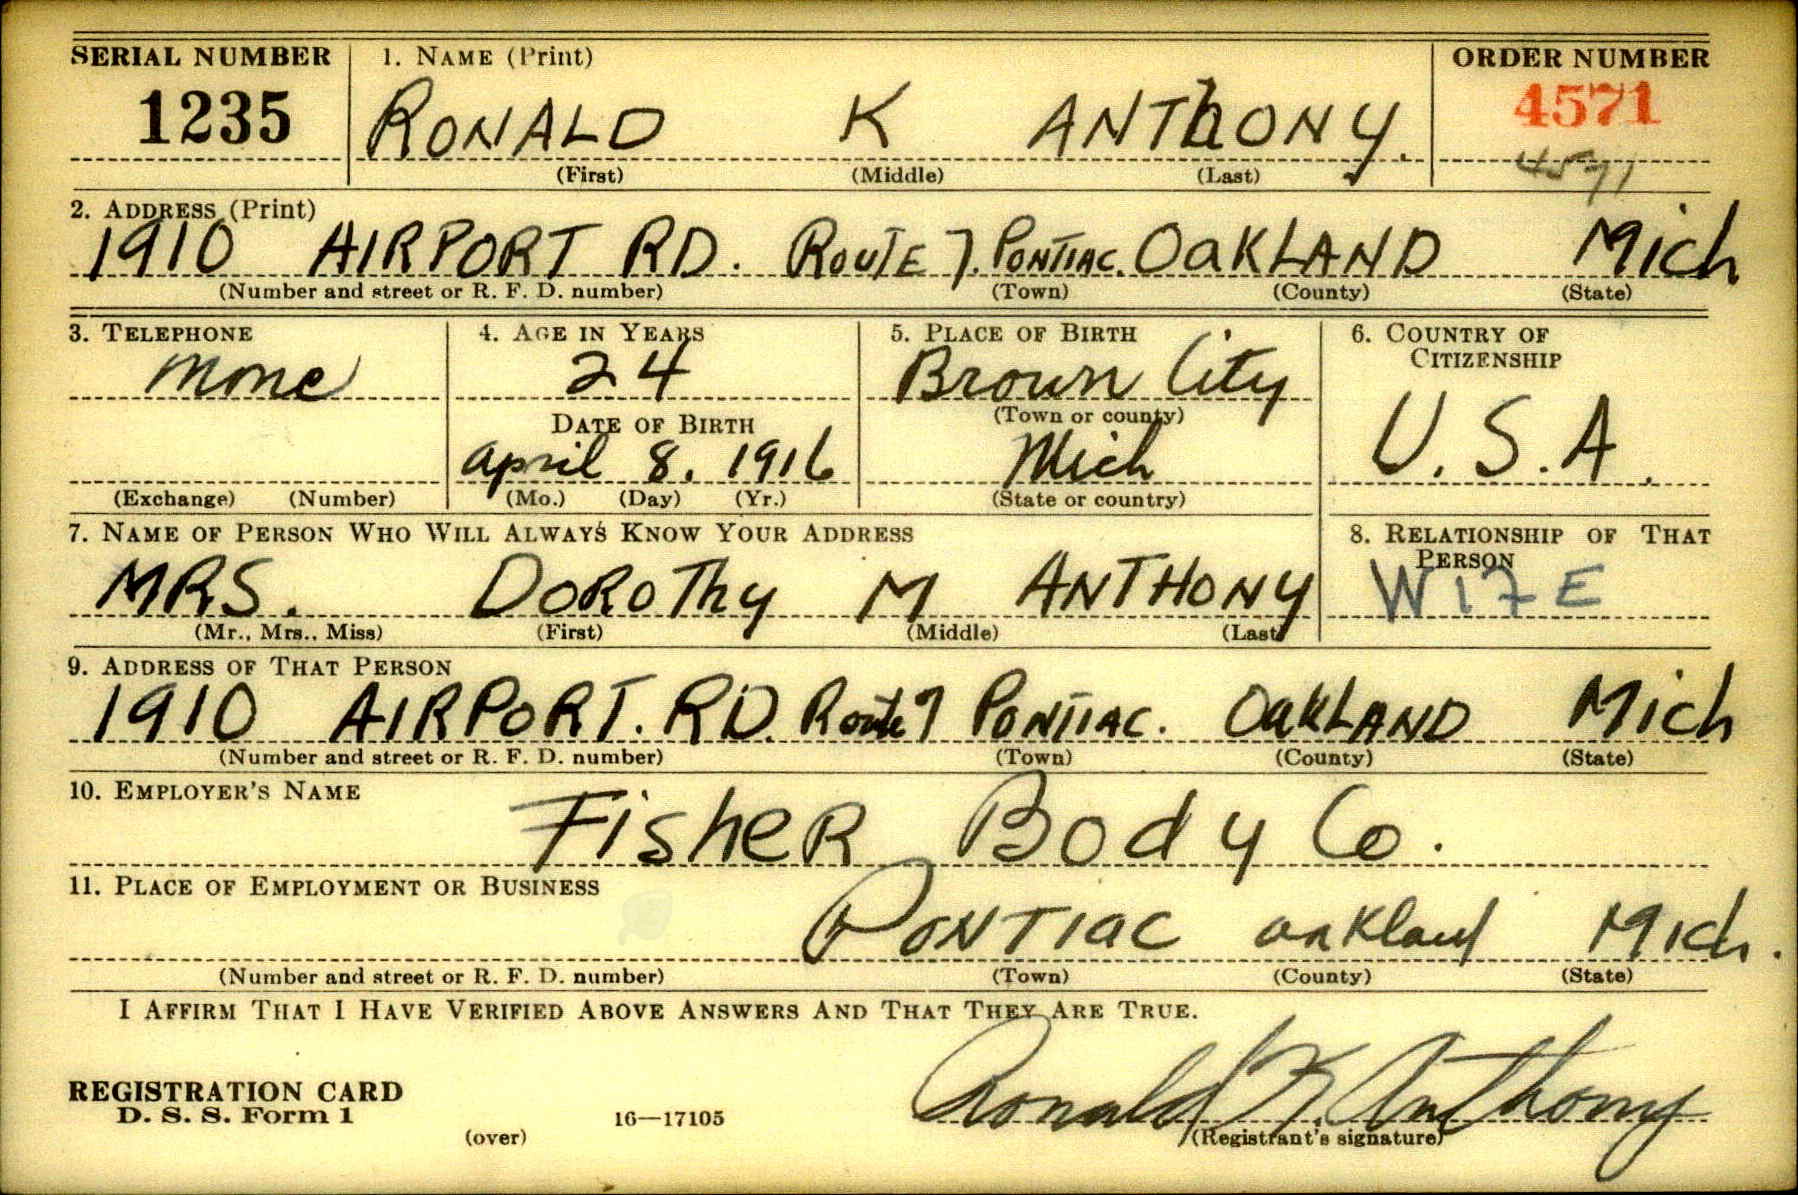 SERIAL NUMBER 1. NAME (Print) ORDER NUMBER
1235 RONALD K ANThONY. 4571
(First) (Middle) (Last) 4571
2. ADDRESS (Print)
1910 AIRPORT RD. ROUTE 7. PONTIAC. OaKLAND Mich
(Number and street or R. F. D. number) (Town) (County) (State)
3. TELEPHONE 4. AGE IN YEARS 5. PLACE OF BIRTH 6. COUNTRY OF
CITIZENSHIP
None 24 Brown City
DATE OF BIRTH (Town or county)
April 8. 1916 Mich U.S.A.
(Exchange) (Number) (Mo.) (Day) (Yr.) (State or country)
7. NAME OF PERSON WHO WILL ALWAYS KNOW YOUR ADDRESS 8. RELATIONSHIP OF THAT
PERSON
MRS. DOROThy M ANTHONY WIFE
(Mr., Mrs., Miss) (First) (Middle) (Last)
9. ADDRESS OF THAT PERSON
1910 AIRPORT. RD. Route 7 PONTIAC. OakLAND Mich
(Number and street or R. F. D. number) (Town) (County) (State)
10. EMPLOYER'S NAME
FisheR Body Co.
11. PLACE OF EMPLOYMENT OR BUSINESS
PONTIaC oakland Mich.
(Number and street or R. F. D. number) (Town) (County) (State)
I AFFIRM THAT I HAVE VERIFIED ABOVE ANSWERS AND THAT THEY ARE TRUE.
Ronald K. Anthony
REGISTRATION CARD
D. S. S. Form 1 16—17105
(over) (Registrant's signature)